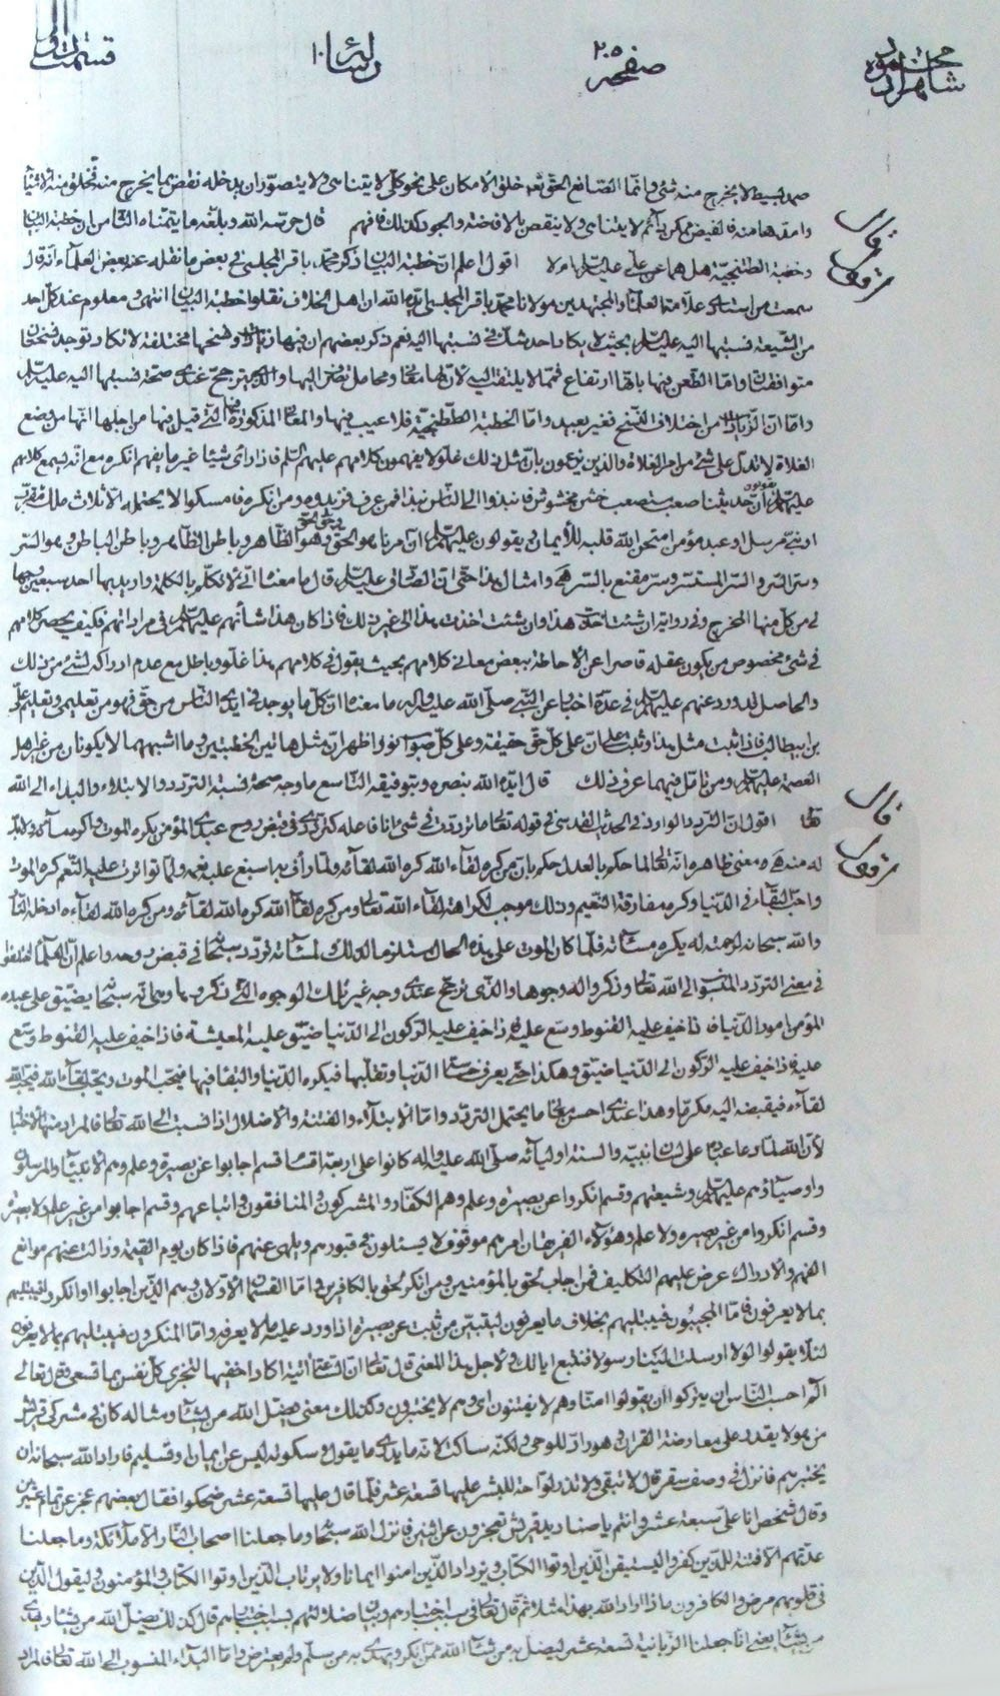 محمود شاهزاده صفحه ٢٠٥ رسالة ١٠ قسمت اول
صمد بسيط لا يخرج منه شئ وانما الصانع الحق تعالى خلق الامكان على نحو كلي لا يتناهى ولا يتصور ان يدخله نقص بما يخرج منه فخلق منه الاشياء
وامدها منه فالفيض ممكن دائم لا يتناهى ولا ينقص بالافاضة والجود وكذلك فافهم قال حرسه الله وبلغه ما يتمناه الثامن ان خطبة البيان
وخطبة الطتنجية هل هما عن علي عليه السلام ام لا اقول اعلم ان خطبة البيان ذكر محمد باقر المجلسي في بعض ما نقله عنه بعض العلماء انه قال
سمعت من استادي علامة العلماء والمجتهدين مولانا محمد باقر المجلسي ايده الله ان اهل الخلاف نقلوا خطبة البيان انتهى ومعلوم عند كل احد
من الشيعة نسبتها اليه عليه السلام بحيث لا يكاد احد يشك في نسبتها اليه نعم ذكر بعضهم ان فيها زيادات ونسخها مختلفة لا تكاد توجد نسختان
متوافقتان واما الطعن فيها بانها ارتفاع فمما لا يلتفت اليه لان لها معان ومحامل تصرف اليها والذي يترجح عندي صحة نسبتها اليه عليه السلام
واما ان الزيادات من اختلاف النسخ فغير بعيد واما الخطبة الططنجية فلا عيب فيها والمعاني المذكورة فيها التي قيل فيها من اجلها انها من وضع
الغلاة لا تدل على شئ من امر الغلاة والذين يدعون بان مثل ذلك غلو لا يفهمون كلامهم عليهم السلام فاذا رأى شيئا غير ما يفهم انكره مع انه يسمع كلامهم
عليهم السلام يقولون ان حديثنا صعب مستصعب خشن مخشوش فانبذوا الى الناس نبذا فمن عرف فزيدوه ومن انكره فامسكوا لا يحتمله الا ثلاث ملك مقرب
او نبي مرسل او عبد مؤمن امتحن الله قلبه للايمان ويقولون عليهم السلام ان امرنا هو الحق وحق الحق وهو الظاهر وباطن الظاهر وباطن الباطن وهو السر
وسر السر والسر المستسر وسر مقنع بالسر هي وامثال هذا حتى ان الصادق عليه السلام قال ما معناه اني لاتكلم بالكلمة واريد بها احد سبعين وجها
لي من كل منها المخرج وفي رواية ان شئت اخذت هذا وان شئت اخذت هذا الى غير ذلك فاذا كان هذا شأنهم عليهم السلام في مراداتهم فكيف يحصر كلامهم
في شئ مخصوص من يكون عقله قاصرا عن الاحاطة ببعض معاني كلامهم بحيث يقول في كلامهم هذا غلو وباطل مع عدم ادراكه لشئ من ذلك
والحاصل قد ورد عنهم عليهم السلام في عدة اخبار عن النبي صلى الله عليه وآله ما معناه ان كل ما يوجد في ايدي الناس من حق فهو من تعليمي وتعليم علي
بن ابيطالب فاذا ثبت مثل هذا وثبت ان على كل حق حقيقة وعلى كل صواب نورا ظهر ان مثل هاتين الخطبتين وما اشبههما لا يكونان من غير اهل
العصمة عليهم السلام ومن تأمل فيهما عرف ذلك قال ايده الله بنصره وبتوفيقه التاسع ما وجه صحة نسبة التردد والابتلاء والبداء الى الله
تعالى اقول ان التردد الوارد في الحديث القدسي في قوله تعالى ما ترددت في شئ انا فاعله كترددي في قبض روح عبدي المؤمن يكره الموت واكره مساءته ولابد
له منه فهي معنى ظاهره انه تعالى لما حكم بالعدل حكم بان من كره لقاء الله كره الله لقاءه ولما رأف به اسبغ عليه نعمه ولما تواترت عليه النعم كره الموت
واحب البقاء في الدنيا وكره مفارقة النعيم وذلك موجب لكراهة لقاء الله تعالى ومن كره لقاء الله كره الله لقاءه ومن كره الله لقاءه ادخله النار
والله سبحانه لرحمته له يكره مساءته فلما كان الموت على هذه الحال مستلزما لذلك لمساءته تردد سبحانه في قبض روحه واعلم ان العلماء اختلفوا
في معنى التردد المنسوب الى الله تعالى وذكروا له وجوها والذي ترجح عندي وجه غير تلك الوجوه التي ذكروها وهو انه سبحانه يضيق على عبده
المؤمن امور الدنيا فاذا خيف عليه القنوط وسع عليه فاذا خيف عليه الركون الى الدنيا ضيق عليه المعيشة فاذا خيف عليه القنوط وسع
عليه فاذا خيف عليه الركون الى الدنيا ضيق وهكذا حتى يعرف خسة الدنيا وتقلبها فيكره الدنيا والبقاء فيها فيحب الموت ويحب لقاء الله فيحب الله
لقاءه فيقبضه اليه مكرما وهذا عندي احسن ما يحتمل التردد واما الابتلاء والفتنة والاضلال اذا نسبت الى الله تعالى فالمراد منها الاختبار
لان الله لما دعا عباده على لسان نبيه والسنة اوليائه صلى الله عليه وآله كانوا على اربعة اقسام قسم اجابوا عن بصيرة وعلم وهم الانبياء والمرسلون
واوصياؤهم عليهم السلام وشيعتهم وقسم انكروا عن بصيرة وعلم وهم الكفار والمشركون والمنافقون واتباعهم وقسم اجابوا من غير علم ولا بصيرة
وقسم انكروا من غير بصيرة ولا علم وهؤلاء الفريقان امرهم موقوف لا يسئلون في قبورهم ويلهى عنهم فاذا كان يوم القيمة وزالت عنهم موانع
الفهم والادراك عرض عليهم التكليف فمن اجاب لحق بالمؤمنين ومن انكر لحق بالكافرين واما القسمان الاولان وهم الذين اجابوا او انكروا فيبتليهم
بما لا يعرفون فاما المجيبون فيبتليهم بخلاف ما يعرفون ليتبين من ثبت عن بصيرة اذا ورد عليه ما لا يعرفه واما المنكرون فيبتليهم بما لا يعرفونه
لئلا يقولوا لولا ارسلت الينا رسولا فنتبع اياتك ولاجل هذا المعنى قال تعالى ان الساعة اتية اكاد اخفيها لتجزى كل نفس بما تسعى وقال تعالى
الم احسب الناس ان يتركوا ان يقولوا امنا وهم لا يفتنون اي وهم لا يختبرون وكذلك معنى يضل الله من يشاء ومثاله كان في مشركي قريش
من هو لا يقدر على معارضة القران وهو راد للوحي ولكنه ساكت لانه ما يدري ما يقول وسكوته ليس عن ايمان وتسليم فاراد الله سبحانه ان
يختبرهم فانزل في وصف سقر قال لا تبقي ولا تذر لواحة للبشر عليها تسعة عشر فلما قال عليها تسعة عشر ضحكوا فقال بعضهم عجز عن تمام عشرين
وقال شخص انا علي سبعة عشر وانتم يا صناديد قريش تعجزون عن اثنين فانزل الله سبحانه وما جعلنا اصحاب النار الا ملائكة وما جعلنا
عدتهم الا فتنة للذين كفروا ليستيقن الذين اوتوا الكتاب ويزداد الذين امنوا ايمانا ولا يرتاب الذين اوتوا الكتاب والمؤمنون وليقول الذين
في قلوبهم مرض والكافرون ماذا اراد الله بهذا مثلا ثم قال تعالى في سبب اختبارهم وبيان ضلالتهم بسبب اختبارهم قال كذلك يضل الله من يشاء ويهدي
من يشاء يعني انا جعلنا الزبانية تسعة عشر ليضل به من يشاء الله ممن انكر ويهدي به من سلم ولم يعترض واما البداء المنسوب الى الله تعالى فالمراد
قال
اقول
قال
اقول